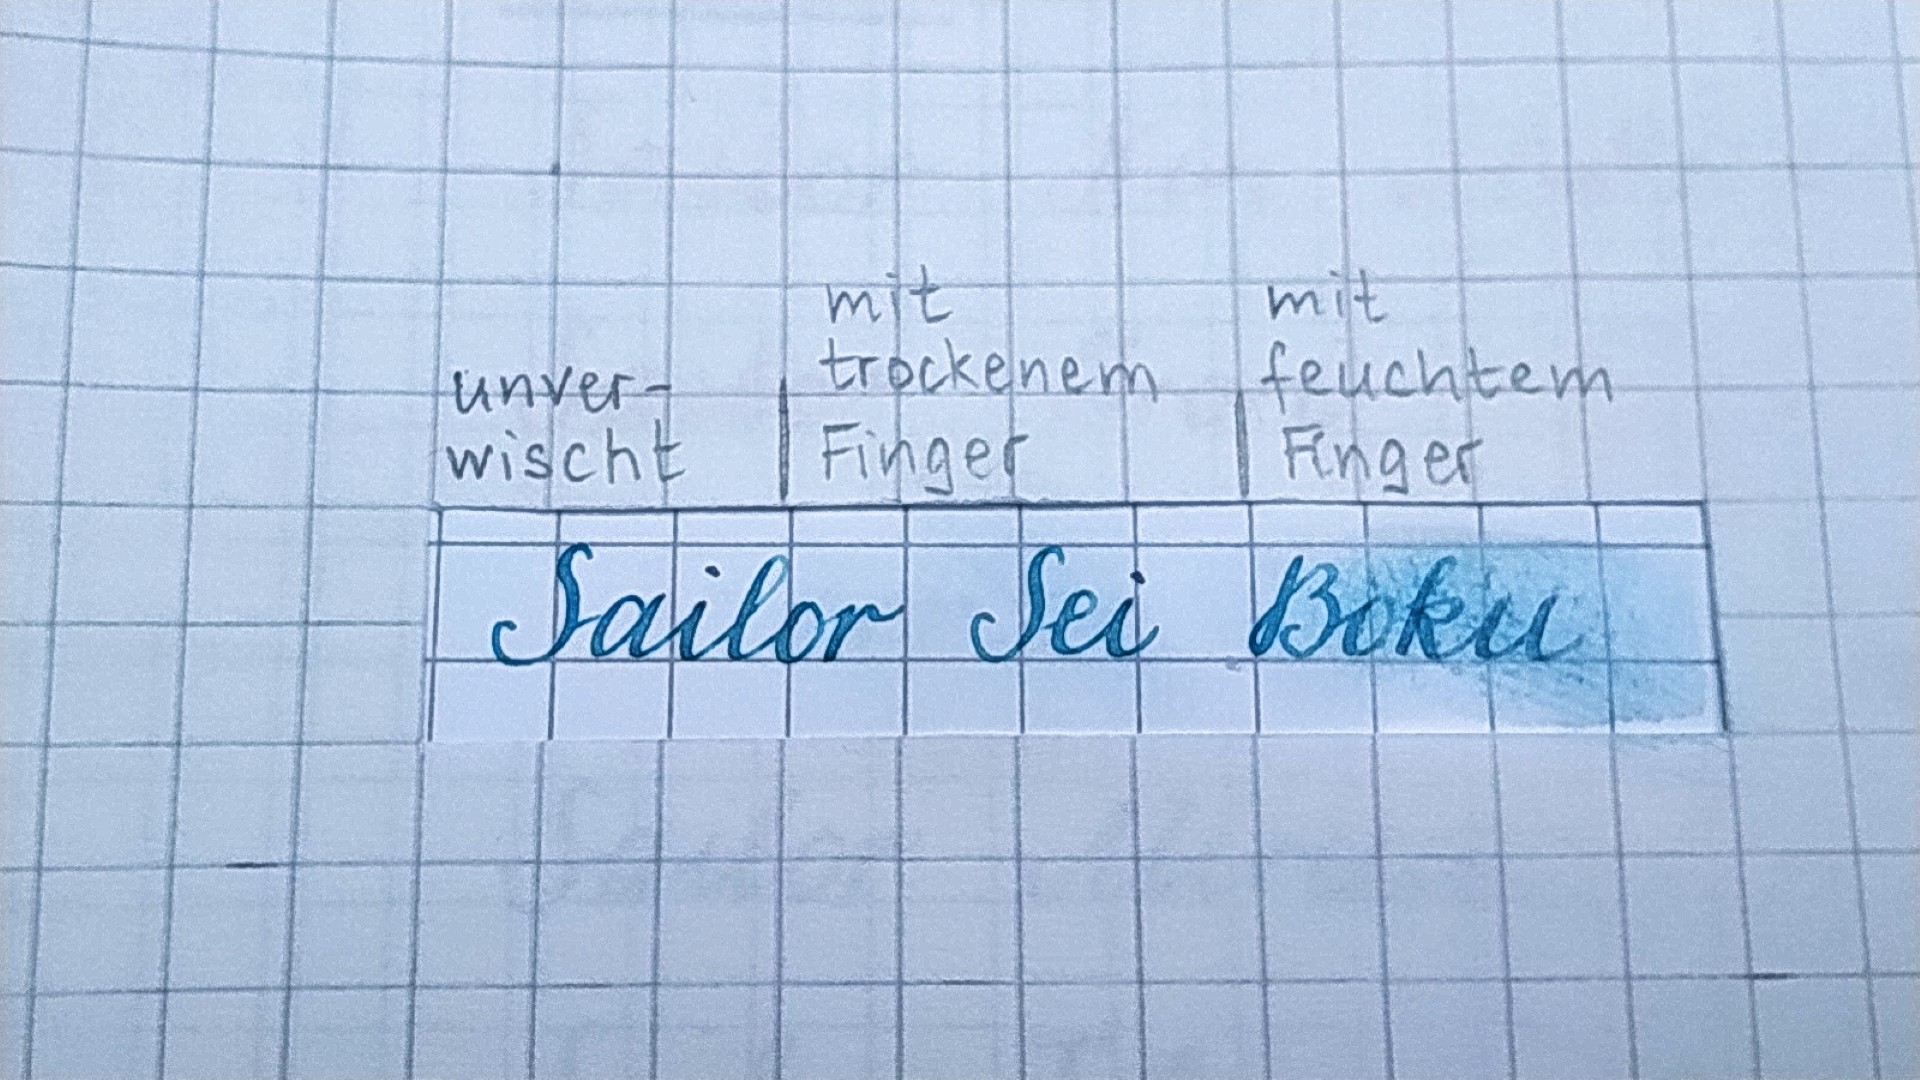 unver-
wischt
mit
trockenem
Finger
mit
feuchtem
Finger
Sailor Sei Boku